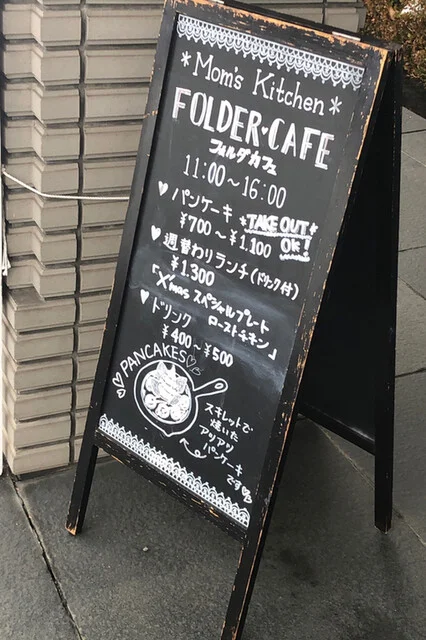 *Mom's Kitchen*
FOLDER♥CAFE
フォルダカフェ
11:00～16:00
♥パンケーキ
¥700～¥1,100
*TAKE OUT*
OK!
♥週替わりランチ(ドリンク付)
¥1,300
「X'mas スペシャルプレート
ローストチキン」
♥ドリンク
¥400～¥500
♡PANCAKES♡
スキレットで
焼いた
アツアツ
パンケーキ
です